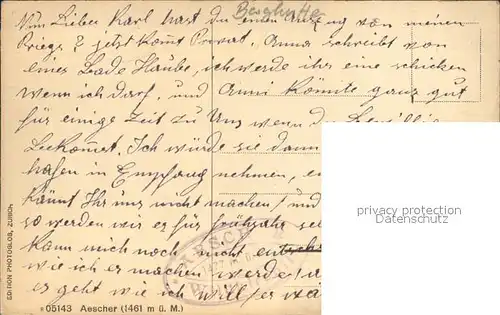 Nun Lieber Karl hast du einen Auszug von meinen
Berghütte
Kriegs & jetzt komt Privat. Anna schreibt von
einer Bade Haube, ich werde ihr eine schicken
wenn ich darf, und Anni könnte ganz gut
für einige Zeit zu Uns wenn du
Ich würde sie dann
hafen in Empfang nehmen,
könnt Ihr uns nicht machen / und
so werden wir es für frühjahr
kann mich noch nicht
wie ich es machen werde
es geht wie ich will
privacy protection
Datenschutz
EDITION PHOTOGLOB, ZÜRICH
* 05143 Aescher (1461 m ü. M.)